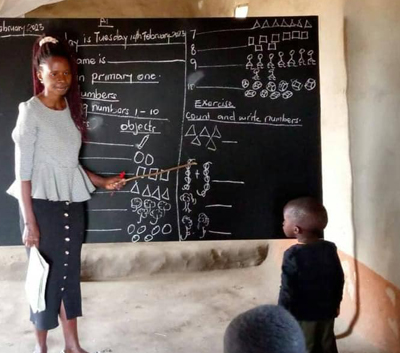 February 2023
P1
day is Tuesday 14th February 2023
name is
in primary one.
numbers
numbers 1 - 10
objects
7
8
9
10
Exercise
Count and write numbers.
+